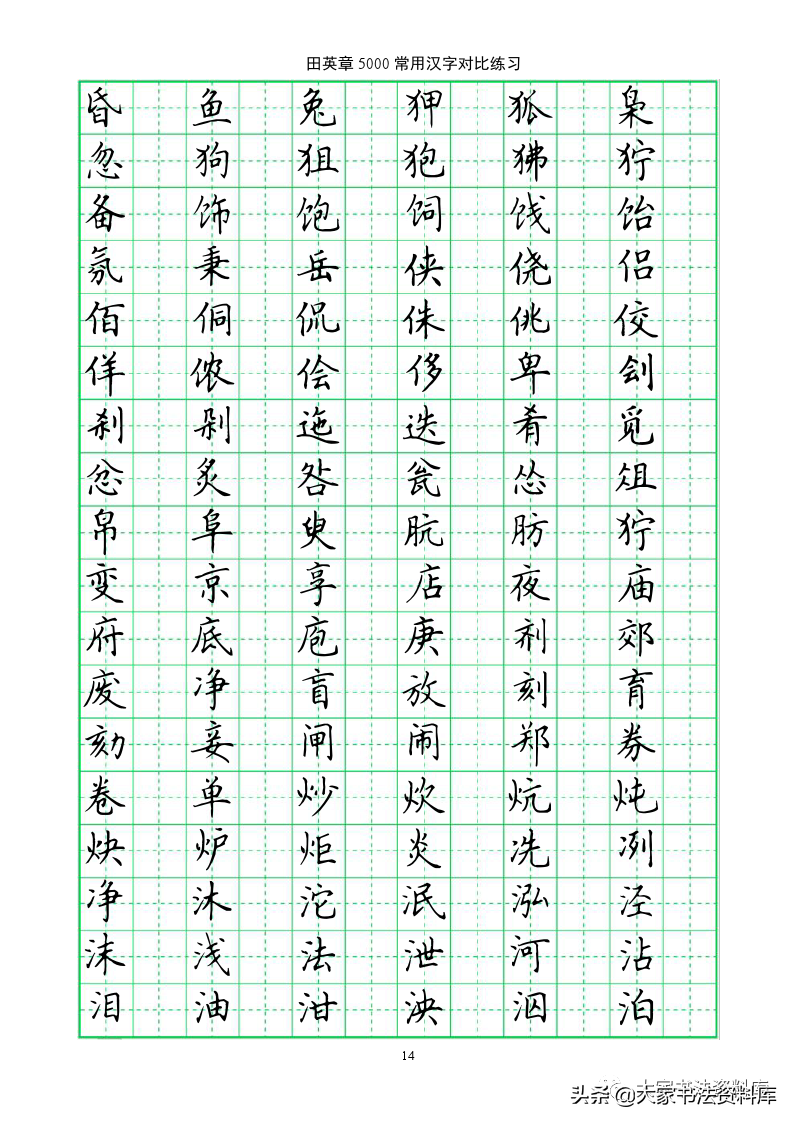 田英章5000常用汉字对比练习
昏 鱼 兔 狎 狐 枭
忽 狗 狙 狍 狒 狞
备 饰 饱 饲 饯 饴
氛 秉 岳 侠 侥 侣
佰 侗 侃 侏 佻 佼
佯 侬 侩 侈 卑 刽
刹 剁 迤 迭 肴 觅
忿 炙 咎 瓮 怂 俎
帛 阜 臾 肮 肪 狞
变 京 享 店 夜 庙
府 底 庖 庚 剂 郊
废 净 盲 放 刻 育
劾 妾 闸 闹 郑 券
卷 单 炒 炊 炕 炖
炔 炉 炬 炎 冼 冽
净 沐 沱 泯 泓 泾
沫 浅 法 泄 河 沾
泪 油 泔 泱 泅 泊
14
头条@大家书法资料库